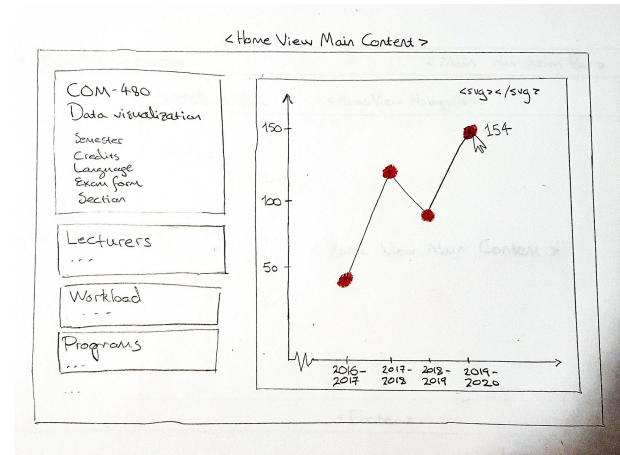 <Home View Main Content>
COM-480
Data visualization
Semester
Credits
Language
Exam form
Section
Lecturers
...
Workload
...
Programs
...
...
<svg></svg>
150
154
100
50
2016-
2017
2017-
2018
2018-
2019
2019-
2020